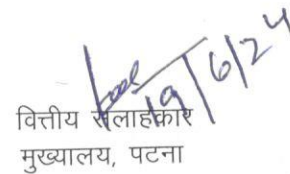 19/6/24
वित्तीय सलाहकार
मुख्यालय, पटना